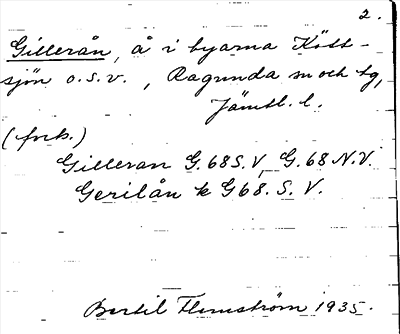 2.
Gillerån, å i byarna Kött-
sjön o.s.v., Ragunda sn och tg,
Jämtl. l.
(fork.)
Gilleran G.68 S.V, G.68 N.V.
Gerilån k G68. S. V.
Bertil Flemström 1935.